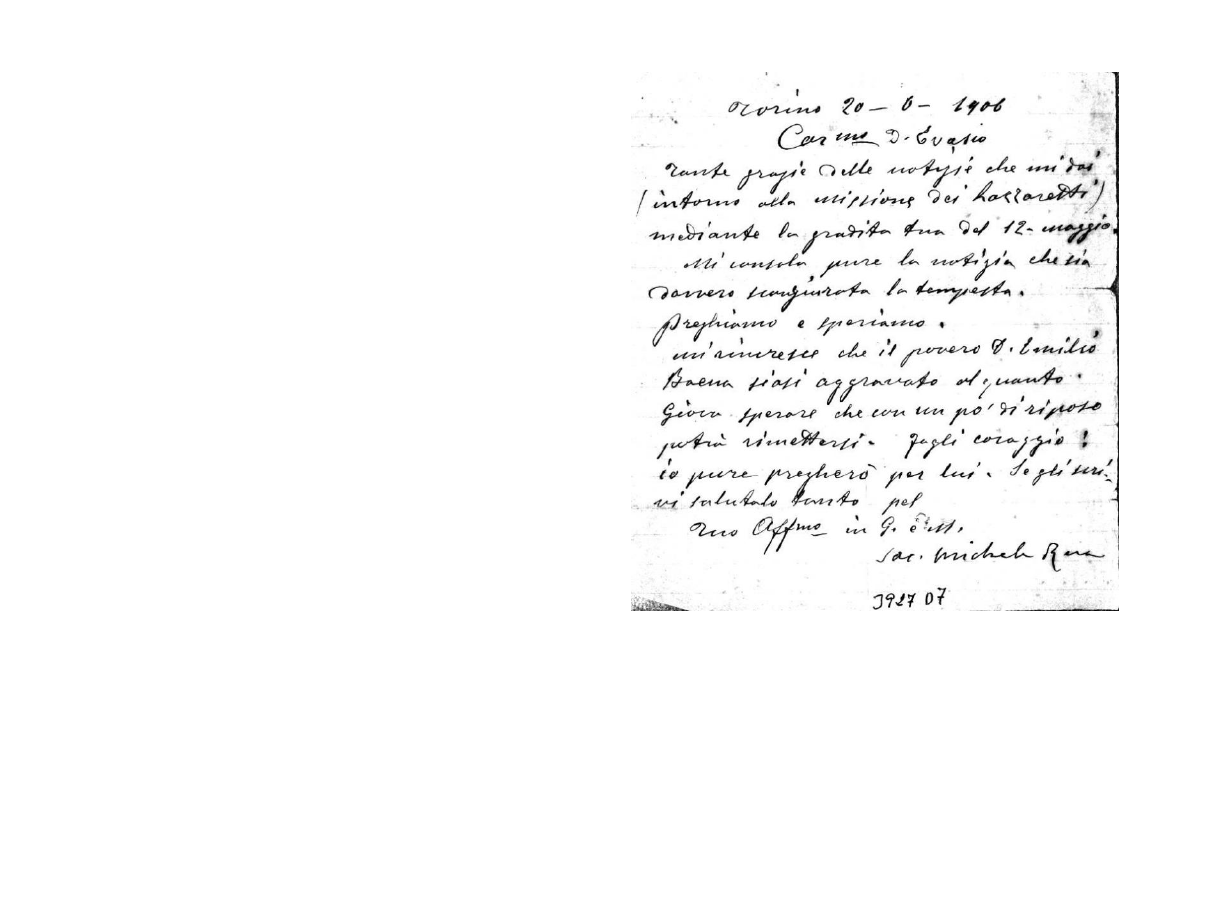 Torino 20 – 6 – 1906
Car.mo D. Evasio
Tante grazie delle notizie che mi dai
(intorno alla missione dei Lazzaretti)
mediante la gradita tua del 12 - maggio.
Mi consola pure la notizia che sia
davvero scongiurata la tempesta.
Preghiamo e speriamo.
Mi rincresce che il povero D. Emilio
Baena siasi aggravato alquanto.
Giova sperare che con un po' di riposo
potrà rimettersi. Fagli coraggio!
io pure pregherò per lui. Se gli scri-
vi salutalo tanto pel
Tuo Aff.mo in G. e M.
Sac. Michele Rua
3927 D7